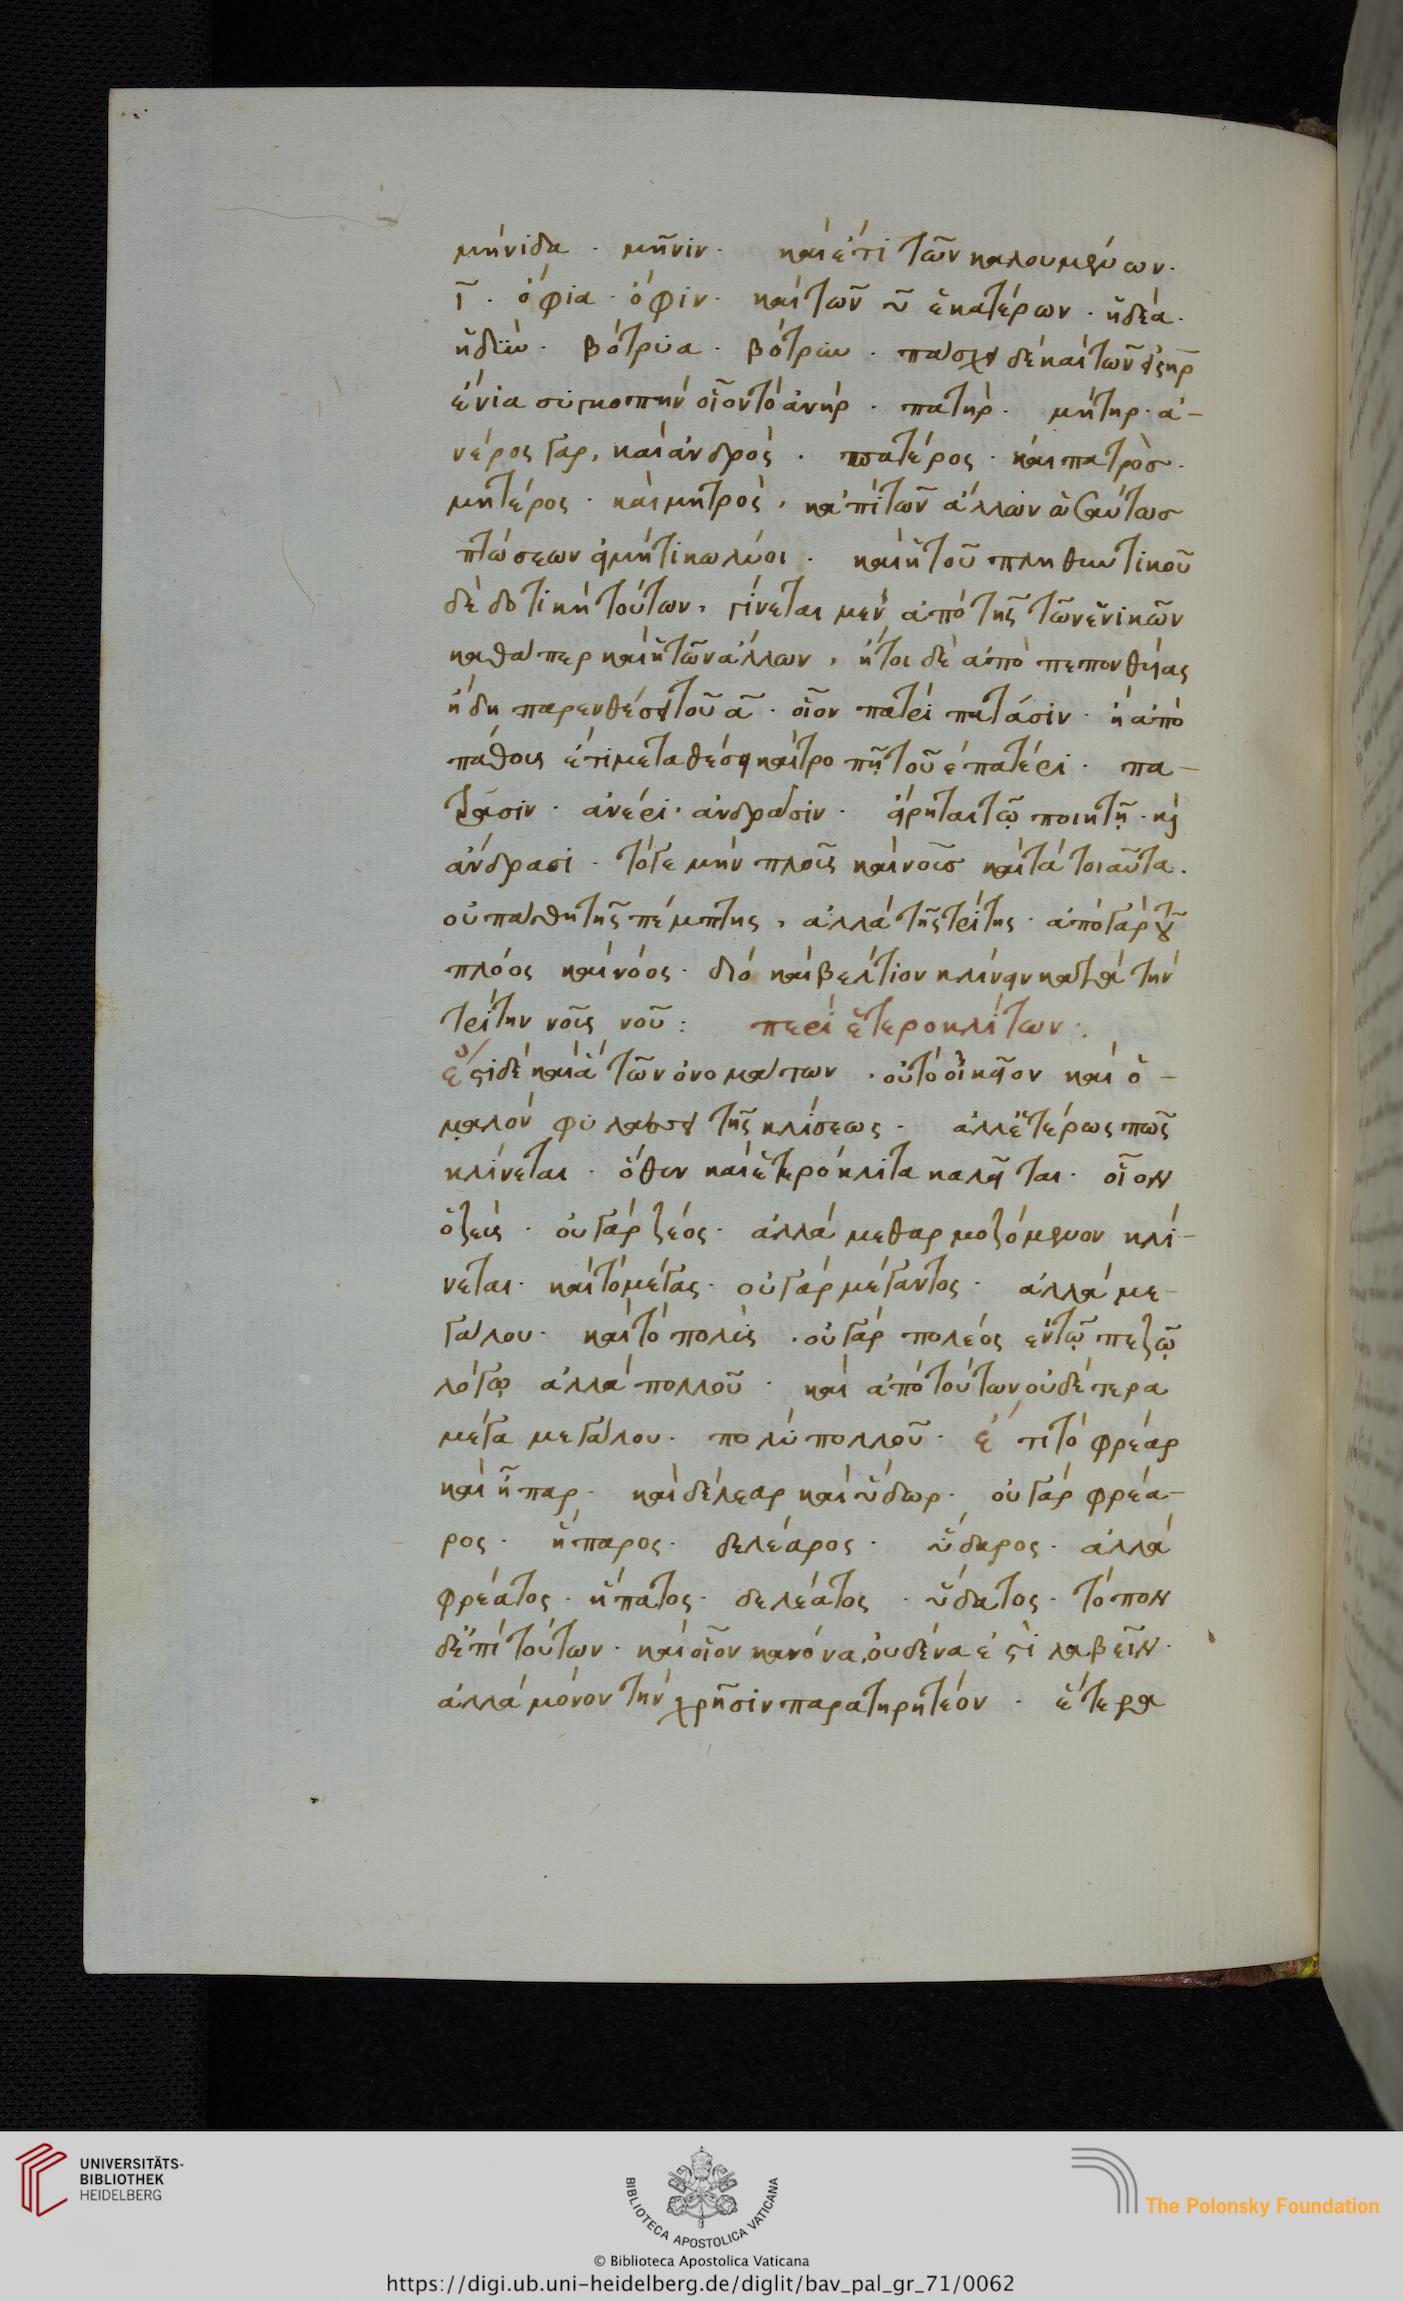 μήνιδα · μῆνιν · καὶ ἔτι τῶν καλουμένων ·
ῑ · ὄφια · ὄφιν · καὶ τῶν ῡ ἑκατέρων · ἡδέα ·
ἡδύν · βότρυα · βότρυν · πάσχει δὲ καὶ τῶν εἰς ηρ
ἔνια συγκοπὴν οἷον τὸ ἀνήρ · πατήρ · μήτηρ · ἀ-
νέρος γὰρ, καὶ ἀνδρὸς · πατέρος · καὶ πατρὸσ ·
μητέρος · καὶ μητρὸς, κἀπὶ τῶν ἄλλων ὡσαύτωσ
πτώσεων εἰ μή τι κωλύοι · καὶ ἡ τοῦ πληθυντικοῦ
δὲ δοτικὴ τούτων, γίνεται μὲν ἀπὸ τῆς τῶν ἑνικῶν
καθάπερ καὶ ἡ τῶν ἄλλων, ἤτοι δὲ ἀπὸ πεπονθυίας
ἤδη παρενθέσει τοῦ ᾱ · οἷον πατρὶ πατράσιν · ἢ ἀπὸ
πάθους ἔτι μεταθέσει καὶ τροπῇ τοῦ ε πατέρι · πα-
τράσιν · ἀνέρι · ἀνδράσιν · εἴρηται τῷ ποιητῇ · καὶ
ἄνδρασι · τό γε μὴν πλοῦς καὶ νοῦσ καὶ τὰ τοιαῦτα ·
οὐ πάνθη τῆς πέμπτης, ἀλλὰ τῆς τρίτης · ἀπὸ γὰρ τοῦ
πλόος καὶ νόος · διὸ καὶ βέλτιον κλίνειν κατὰ τὴν
τρίτην νοῦς νοῦ : περὶ ἑτεροκλίτων :
ἔστι δὲ καὶ ἃ τῶν ὀνομάτων · οὐ τὸ οἰκεῖον καὶ ὁ-
μαλὸν φυλάσσει τῆς κλίσεως · ἀλλ' ἑτέρως πῶς
κλίνεται · ὅθεν καὶ ἑτερόκλιτα καλεῖται · οἷον
ὁ ζεὺς · οὐ γὰρ ζεός · ἀλλὰ μεθαρμοζόμενον κλί-
νεται · καὶ τὸ μέγας · οὐ γὰρ μέγαντος · ἀλλὰ με-
γάλου · καὶ τὸ πολὺς · οὐ γὰρ πολέος ἐν τῷ πεζῷ
λόγῳ ἀλλὰ πολλοῦ · καὶ ἀπὸ τούτων οὐδέτερα
μέγα μεγάλου · πολὺ πολλοῦ · ἔτι τὸ φρέαρ
καὶ ἧπαρ · καὶ δέλεαρ καὶ ὕδωρ · οὐ γὰρ φρέα-
ρος · ἥπαρος · δελέαρος · ὕδαρος · ἀλλὰ
φρέατος · ἥπατος · δελέατος · ὕδατος · τὸ πον
δ' ἐπὶ τούτων · καὶ οἷον κανόνα, οὐδένα ἐστὶ λαβεῖν ·
ἀλλὰ μόνον τὴν χρῆσιν παρατηρητέον · ἕτερα
UNIVERSITÄTS-
BIBLIOTHEK
HEIDELBERG
BIBLIOTECA APOSTOLICA VATICANA
© Biblioteca Apostolica Vaticana
The Polonsky Foundation
https://digi.ub.uni-heidelberg.de/diglit/bav_pal_gr_71/0062